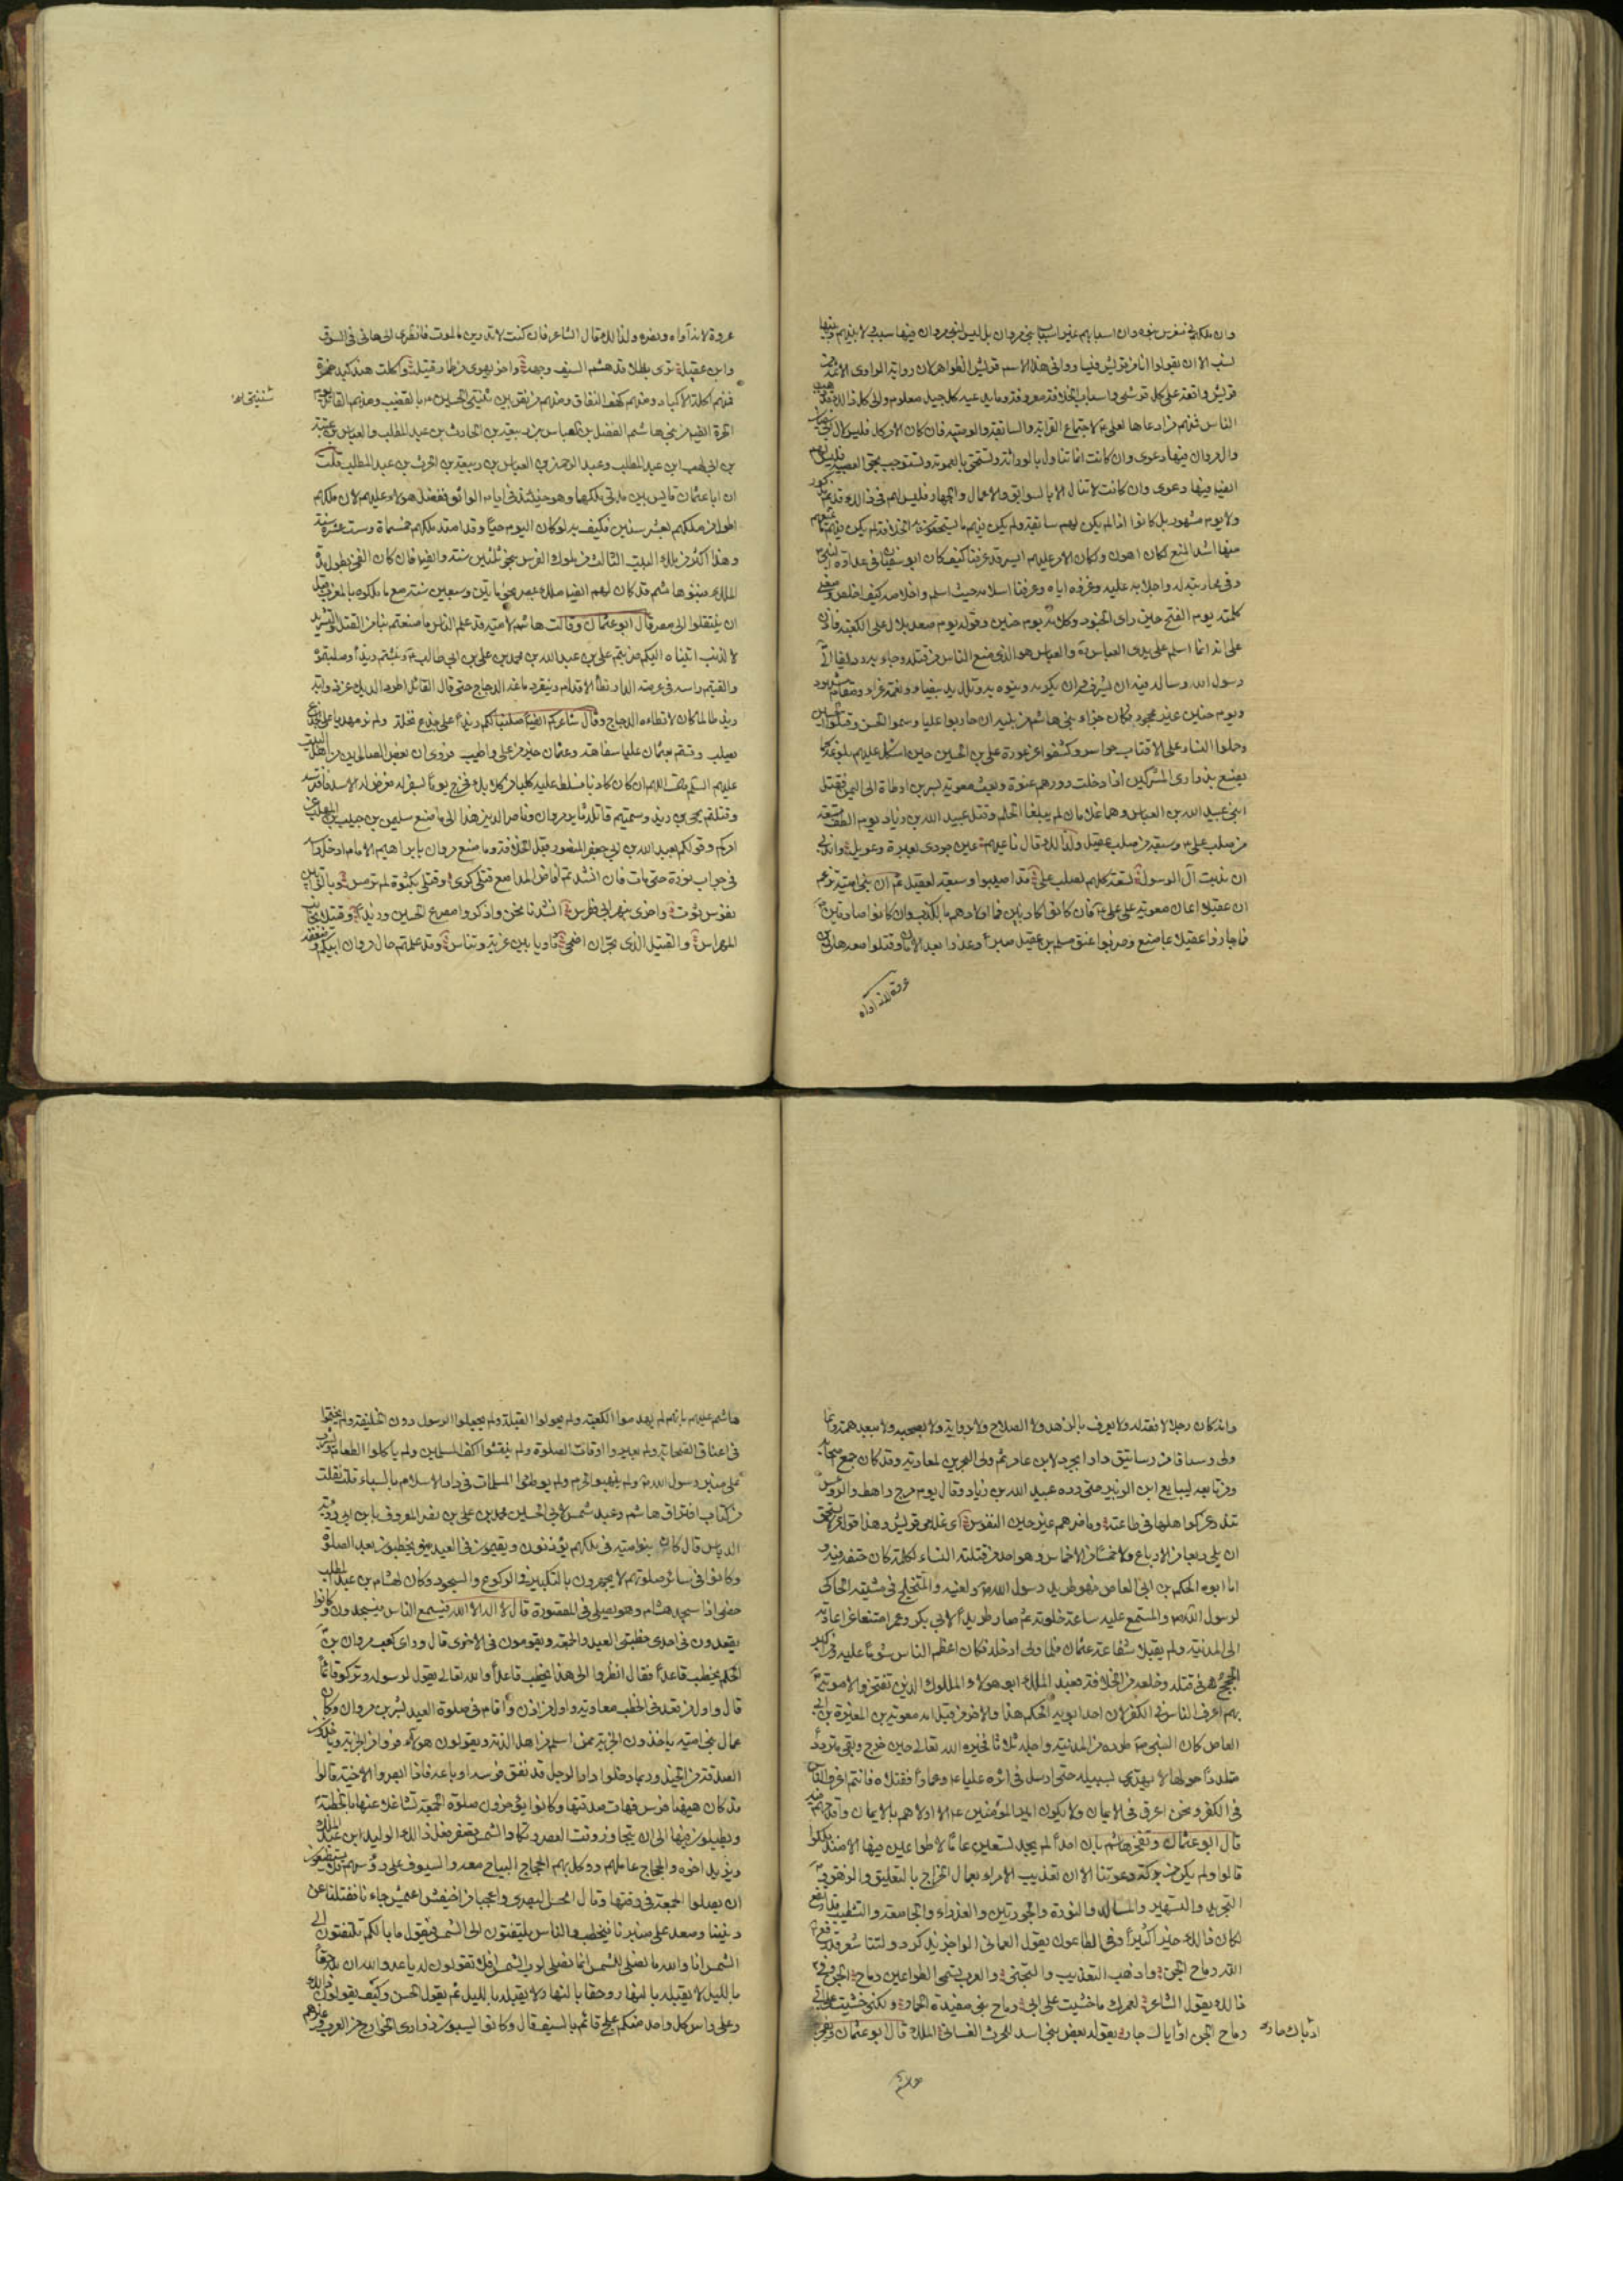 وان ملكه في مغرس بنوه وان اسبابهم غير اسباب بني مروان بل ليس لبني مروان فيها سبب ولا بينهم وبينها
نسب الا ان يقولوا انا من قريش فيساووا في هذا الاسم قريش الظواهر لان رواية الراوي الائمة من
قريش واقعة على كل قرشي واسباب الخلافة معروفة وما يدعيه كل جيل معلوم والى كل ذلك قد ذهب
الناس فمنهم من ادعاها لعلي ع لاجتماع القرابة والسابقة والوصية فان كان الامر كذلك فليس لآل ابي سفيان
وآل مروان فيها دعوى وان كانت انما تنال بالوراثة وتستحق بالعمومة وتستوجب بحق العصبة فليس لهم
ايضا فيها دعوى وان كانت لا تنال الا بالسوابق والاعمال والجهاد فليس لهم في ذلك قدم مذكور
ولا يوم مشهور بل كانوا اذا لم يكن لهم سابقة ولم يكن فيهم ما يستحقون به الخلافة ولم يكن فيهم ما يمنعهم
منها اشد المنع لكان اهون ولكان الامر عليهم ايسر قد عرفنا كيف كان ابو سفيان في عداوة النبي ص
وفي محاربته له واجلابه عليه وغزوه اياه وعرفنا اسلامه حيث اسلم واخلاصه كيف اخلص ومعنى
كلمته يوم الفتح حين راى الجنود وكلامه يوم حنين وقوله يوم صعد بلال على الكعبة فاذن
على انه انما اسلم على يدي العباس ره والعباس هو الذي منع الناس من قتله وجاء به رديفا الى
رسول الله وساله فيه ان يشرفه وان يكرمه وينوه به وتلك يد بيضاء ونعمة غراء ومقام مشهود
ويوم حنين غير مجحود فكان جزاء بني هاشم من بنيه ان حاربوا عليا وسموا الحسن وقتلوا الحسين
وحملوا النساء على الاقتاب حواسر وكشفوا عن عورة علي بن الحسين حين اشكل عليهم بلوغه كما
يصنع بذراري المشركين اذا دخلت دورهم عنوة وبعث معوية بسر بن ارطاة الى اليمن فقتل
ابني عبيد الله بن العباس وهما غلامان لم يبلغا الحلم وقتل عبيد الله بن زياد يوم الطف تسعة
من صلب علي ع وسبعة من صلب عقيل ولذلك قال ناعيهم عين جودي بعبرة وعويل واندبي
ان ندبت آل الرسول تسعة كلهم لصلب علي قد اصيبوا وسبعة لعقيل ثم ان بني امية تزعم
ان عقيلا اعان معوية على علي ع فان كانوا كاذبين فما اولاهم بالكذب وان كانوا صادقين فما
فما جازوا عقيلا بما صنع وضربوا عنق مسلم بن عقيل صبرا وغدرا بعد الامان وقتلوا معه هاني بن
عروة لانه اواه
عروة لانه آواه ونصره ولذلك قال الشاعر فان كنت لا تدرين ما الموت فانظري الى هاني في السوق
وابن عقيل ترى بطلا قد هشم السيف وجهه واخر يهوي من طمار قتيل واكلت هند كبد حمزة
فمنهم اكلة الاكباد ومنهم كهف النفاق ومنهم من نقر بين ثنيتي الحسين ع بالقضيب ومنهم القاتل يوم
ثنيتي
الحرة ايضا من بني هاشم الفضل بن العباس بن ربيعة بن الحارث بن عبد المطلب والعباس بن عتبة
بن ابي لهب ابن عبد المطلب وعبد الرحمن بن العباس بن ربيعة بن الحرث بن عبد المطلب قلت
ان ابا عثمان قايس بين مدتي ملكهما وهو حينئذ في ايام الواثق ففضل هولاء عليهم لان ملكهم
اطول من ملكهم بعشر سنين فكيف به لو كان اليوم حيا وقد امتد ملكهم خمسماة وست عشرة سنة
وهذا اكثر من ملك البيت الثالث من ملوك الفرس بنحو ثلثين سنة وايضا فان كان الفخر بطول مدة
الملك فبنو هاشم قد كان لهم ايضا ملك بمصر نحو مايتين وسبعين سنة مع ما ملكوه بالمغرب قبل
ان ينتقلوا الى مصر قال ابو عثمان وقالت هاشم لامية قد علم الناس ما صنعتم بنا من القتل والتشريد
لا لذنب اتيناه اليكم ضربتم علي بن عبد الله بن العباس
والقيتم راسه في عرصة الدار تطاه الاقدام وينقر دماغه الدجاج حتى قال القائل اطردوا الديك عن ذوابة
زيد طالما كان لا تطاه الدجاج وقال شاعركم ايضا صلبنا لكم زيدا على جذع نخلة ولم نر مهديا على الجذع
يصلب وقستم بعثمان عليا سفاهة وعثمان خير من علي واطيب فروي ان بعض الصالحين من اهل البيت
عليهم السلم قال اللهم ان كان كاذبا فسلط عليه كلبا من كلابك فخرج يوما بسفر له فعرض له الاسد فافترسه
وقتلتم يحيى بن زيد وسميتم قاتله ثائر مروان وناصر الدين هذا الى ما صنع سليمن بن حبيب بن المهلب عن
امركم وقولكم بعبد الله بن ابي جعفر المنصور قبل الخلافة وما صنع مروان بابراهيم الامام ادخل راسه
في جراب نورة حتى مات فان انشدتم افاض المدامع قتلى كدى وقتلى بكثوة لم ترمس وبالزابيين
نفوس ثوت واخرى بنهر ابي فطرس انشدنا نحن واذكروا مصرع الحسين وزيد وقتيلا بجانب
المهراس والقتيل الذي بحران اضحى ثاويا بين غربة وتناس وقد علمتم حال مروان ابيكم وضعفه
وانه كان رجلا لا فقه له ولا يعرف بالزهد ولا الصلاح ولا برواية ولا بصحبة ولا ببعد همة وانما
ولي رستاقا من رساتيق دارابجرد لابن عامر ثم ولي البحرين لمعاوية وقد كان جمع اصحابه
ومن تابعه ليبايع ابن الزبير حتى رده عبيد الله بن زياد وقال يوم مرج راهط والرؤس
تندر عن كواهلها في طاعته وما ضرهم غير حين النفوس اي غلامي قريش وهذا قول من لا يستحق
ان يلي ربعا من الارباع ولا خمسا من الاخماس وهو احد من قتلته النساء لكلمة كان حتفه فيها
اما ابوه الحكم بن ابي العاص فهو طريد رسول الله ص ولعينه والمتخلج في مشيته الحاكي
لرسول الله ص والمستمع عليه ساعة خلوته ثم صار طريدا لابي بكر وعمر امتنعا عن اعادته
الى المدينة ولم يقبلا شفاعة عثمان فلما ولي ادخله فكان اعظم الناس شوما عليه ومن اكبر
الحجج في قتله وخلعه من الخلافة فعبد الملك ابو هولاء الملوك الذين تفتخر الاموية
بهم اعرق الناس في الكفر لان احد ابويه الحكم هذا والاخر من قبل امه معوية بن المغيرة بن ابي
العاص كان النبي ص طرده من المدينة واجله ثلاثا فحيره الله تعالى حين خرج وبقي مترددا
متلددا حولها لا يهتدي لسبيله حتى ارسل في اثره عليا ع وعمارا فقتلاه فانتم اعرق الناس
في الكفر ونحن اعرق في الايمان ولا يكون امير المؤمنين الا اولاهم بالايمان واقدمهم فيه
قال ابو عثمان وتفخر هاشم بان احدا لم يجد تسعين عاما لا طواعين فيها الا منذ ملكوا
قالوا ولم يكن من بركة دعوتنا الا ان تعذيب الامراء بعمال الخراج بالتعليق والزهق و
التجريد والتسهير والمسال والنورة والجورتين والعذراء والجامعة والتشطيب قد ارتفع
لكان ذلك خيرا كثيرا وفي الطاعون يقول العماني الراجز يذكر دولتنا شعر قد رفع
الله رماح الجن واذهب التعذيب والتجني والعرب تسمي الطواعين رماح الجن وفي
ذلك يقول الشاعر لعمرك ما خشيت على ابي رماح بني مقيدة الحمار ولكني خشيت على ابي
رماح الجن او اياك حار يقوله بعض بني اسد للحرث الغساني الملك قال ابو عثمان وتفخر
هاشم
هاشم عليهم بانهم لم يهدموا الكعبة ولم يحولوا القبلة ولم يجعلوا الرسول دون الخليفة ولم يختموا
في اعناق الصحابة ولم يغيروا اوقات الصلوة ولم ينقشوا اكف المسلمين ولم ياكلوا الطعام ويشربوا
على منبر رسول الله ص ولم ينهبوا الحرم ولم يوطئوا المسلمات في دار الاسلام بالسباء قلت نقلت
من كتاب افتراق هاشم وعبد شمس لابي الحسين محمد بن علي بن نصر المعروف بابن ابي روبة
الدباس قال كان بنو امية في ملكهم يؤذنون ويقيمون في العيد ويخطبون بعد الصلوة
وكانوا في سائر صلوتهم لا يجهرون بالتكبير في الركوع والسجود وكان لهشام بن عبد الملك
خصي اذا سجد هشام وهو يصلي في المقصورة قال لا اله الا الله فيسمع الناس فيسجدون وكانوا
يقعدون في احدى خطبتي العيد والجمعة ويقومون في الاخرى قال وراى كعب مروان بن
الحكم يخطب قاعدا فقال انظروا الى هذا يخطب قاعدا والله تعالى يقول لرسوله وتركوك قائما
قال واول من قعد في الخطب معاوية واول من اذن واقام في صلوة العيد بشر بن مروان وكان
عمال بني امية ياخذون الجزية ممن اسلم من اهل الذمة ويقولون هولاء فروا من الجزية وياخذون
الصدقة من الخيل وربما دخلوا دار الرجل قد نفق فرسه او باعه فاذا ابصروا الاخية قالوا
قد كان ههنا فرس فهات صدقتها وكانوا يؤخرون صلوة الجمعة تشاغلا عنها بالخطبة
ويطيلون فيها الى ان يتجاوز وقت العصر وتكاد الشمس تصفر فعل ذلك الوليد ابن عبد الملك
ويزيد اخوه والحجاج عاملهم ووكل بهم الحجاج المسالح معه والسيوف على رؤسهم فلا يستطيعون
ان يصلوا الجمعة في وقتها وقال الحسن البصري واعجبا من اخيفش اعيمش جاءنا ففتننا عن
ديننا وصعد على منبرنا فيخطب والناس يلتفتون الى الشمس فيقول ما بالكم تلتفتون الى
الشمس انا والله ما نصلي للشمس انما نصلي لرب الشمس افلا تقولون له يا عدو الله ان لله حقا
بالليل لا يقبله بالنهار وحقا بالنهار لا يقبله بالليل ثم يقول الحسن وكيف يقولون ذلك
وعلى راس كل واحد منهم علج قائم بالسيف قال وكانوا يسبون ذراري الخوارج من العرب وغيرهم